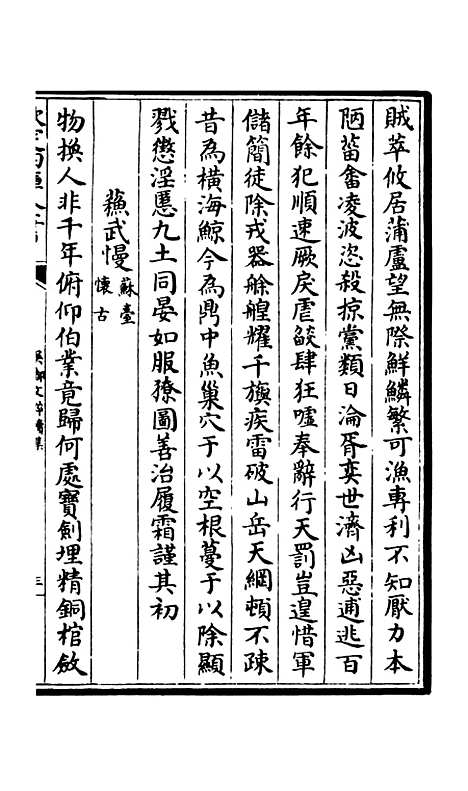 賊萃攸居蒲盧望無際鮮鱗繁可漁專利不知厭力本
陋菑畬凌波恣殺掠黨類日淪胥奕世濟凶惡逋逃百
年餘犯順速厥戾虐燄肆狂嘘奉辭行天罰豈遑惜軍
儲簡徒除戎器艅艎耀千旟疾雷破山岳天綱頓不疎
昔為橫海鯨今為鼎中魚巢穴于以空根蔓于以除顯
戮懲淫慝九土同晏如服獠圖善治履霜謹其初
蘓武慢
蘇臺
懷古
物換人非千年俯仰伯業竟歸何處寶劍埋精銅棺啟
吳都文粹續集